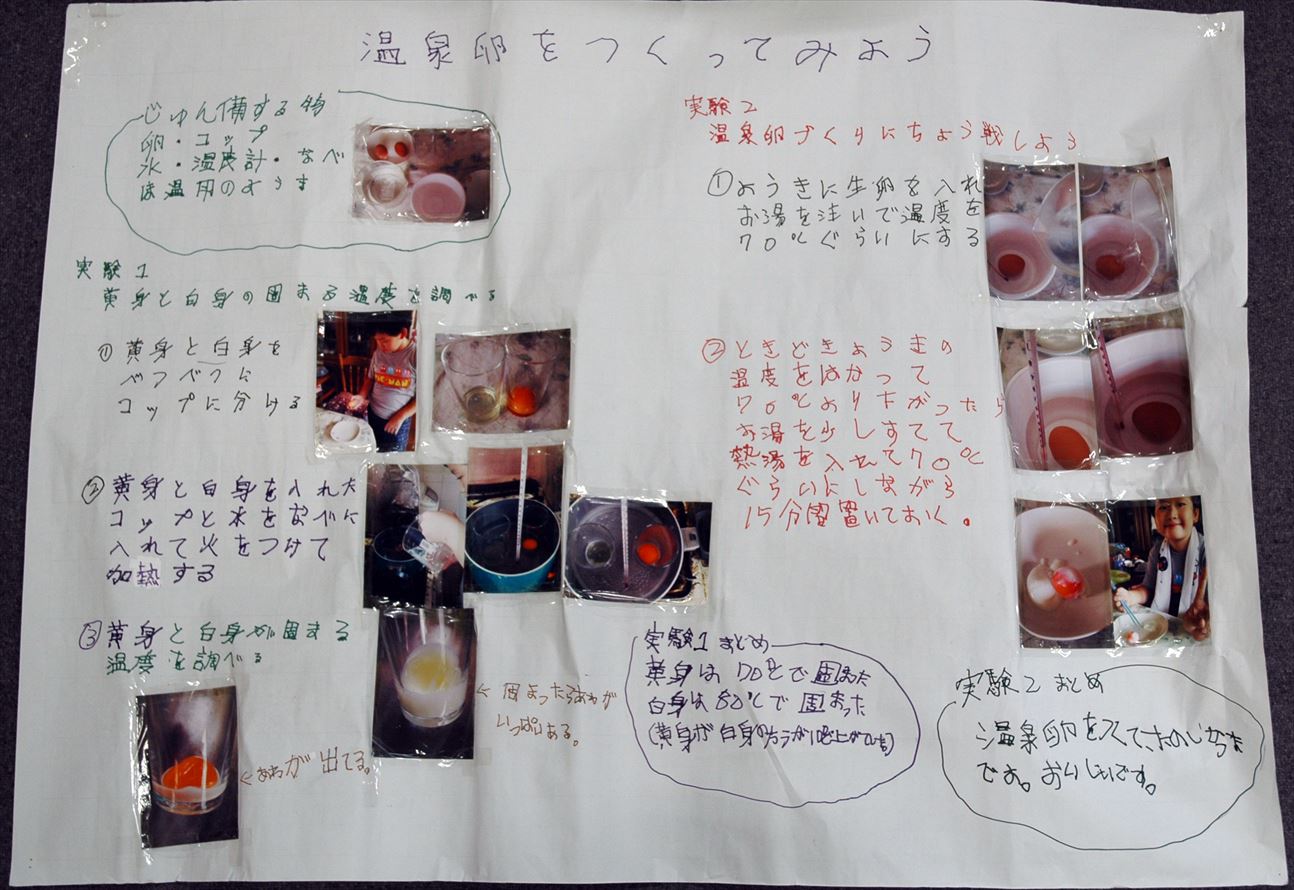 温泉卵をつくってみよう
じゅん備する物
卵・コップ
水・温度計・なべ
ほ温用のようき
実験1
黄身と白身の固まる温度を調べる
①黄身と白身を
べつべつに
コップに分ける
②黄身と白身を入れた
コップと水をなべに
入れて火をつけて
加熱する
③黄身と白身が固まる
温度を調べる
←あわが出てる。
←固まったらあわが
いっぱいある。
実験1まとめ
黄身は70℃で固まった
白身は80℃で固まった
(黄身が白身の方が
実験2
温泉卵づくりにちょう戦しよう
①ようきに生卵を入れ
お湯を注いで温度を
70℃ぐらいにする
②ときどきようきの
温度をはかって
70℃より下がったら
お湯を少しすてて
熱湯を入れて70℃
ぐらいにしながら
15分間置いておく。
実験2まとめ
温泉卵を
です。おいしいです。